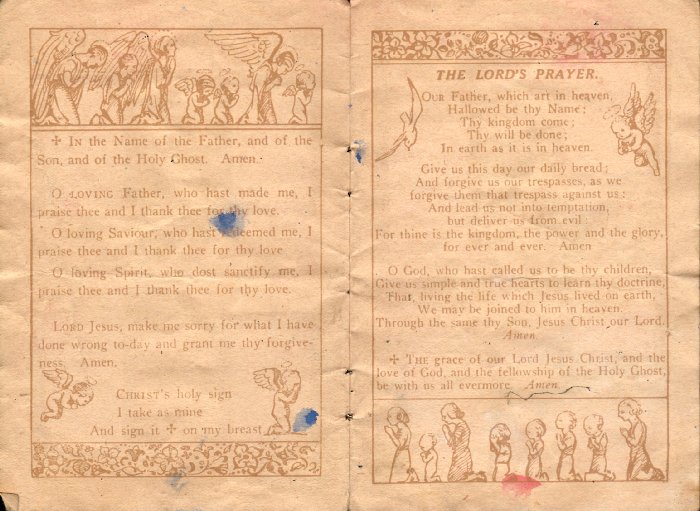 ✠ IN the Name of the Father, and of the
Son, and of the Holy Ghost. Amen.
O LOVING Father, who hast made me, I
praise thee and I thank thee for thy love.
O loving Saviour, who hast redeemed me, I
praise thee and I thank thee for thy love
O loving Spirit, who dost sanctify me, I
praise thee and I thank thee for thy love.
LORD Jesus, make me sorry for what I have
done wrong to-day and grant me thy forgive-
ness. Amen.
CHRIST'S holy sign
I take as mine
And sign it ✠ on my breast
THE LORD'S PRAYER.
OUR Father, which art in heaven,
Hallowed be thy Name;
Thy kingdom come;
Thy will be done;
In earth as it is in heaven.
Give us this day our daily bread;
And forgive us our trespasses, as we
forgive them that trespass against us:
And lead us not into temptation,
but deliver us from evil:
For thine is the kingdom, the power and the glory,
for ever and ever. Amen
O God, who hast called us to be thy children,
Give us simple and true hearts to learn thy doctrine,
That, living the life which Jesus lived on earth,
We may be joined to him in heaven.
Through the same thy Son, Jesus Christ our Lord.
Amen.
✠ THE grace of our Lord Jesus Christ, and the
love of God, and the fellowship of the Holy Ghost,
be with us all evermore. Amen.